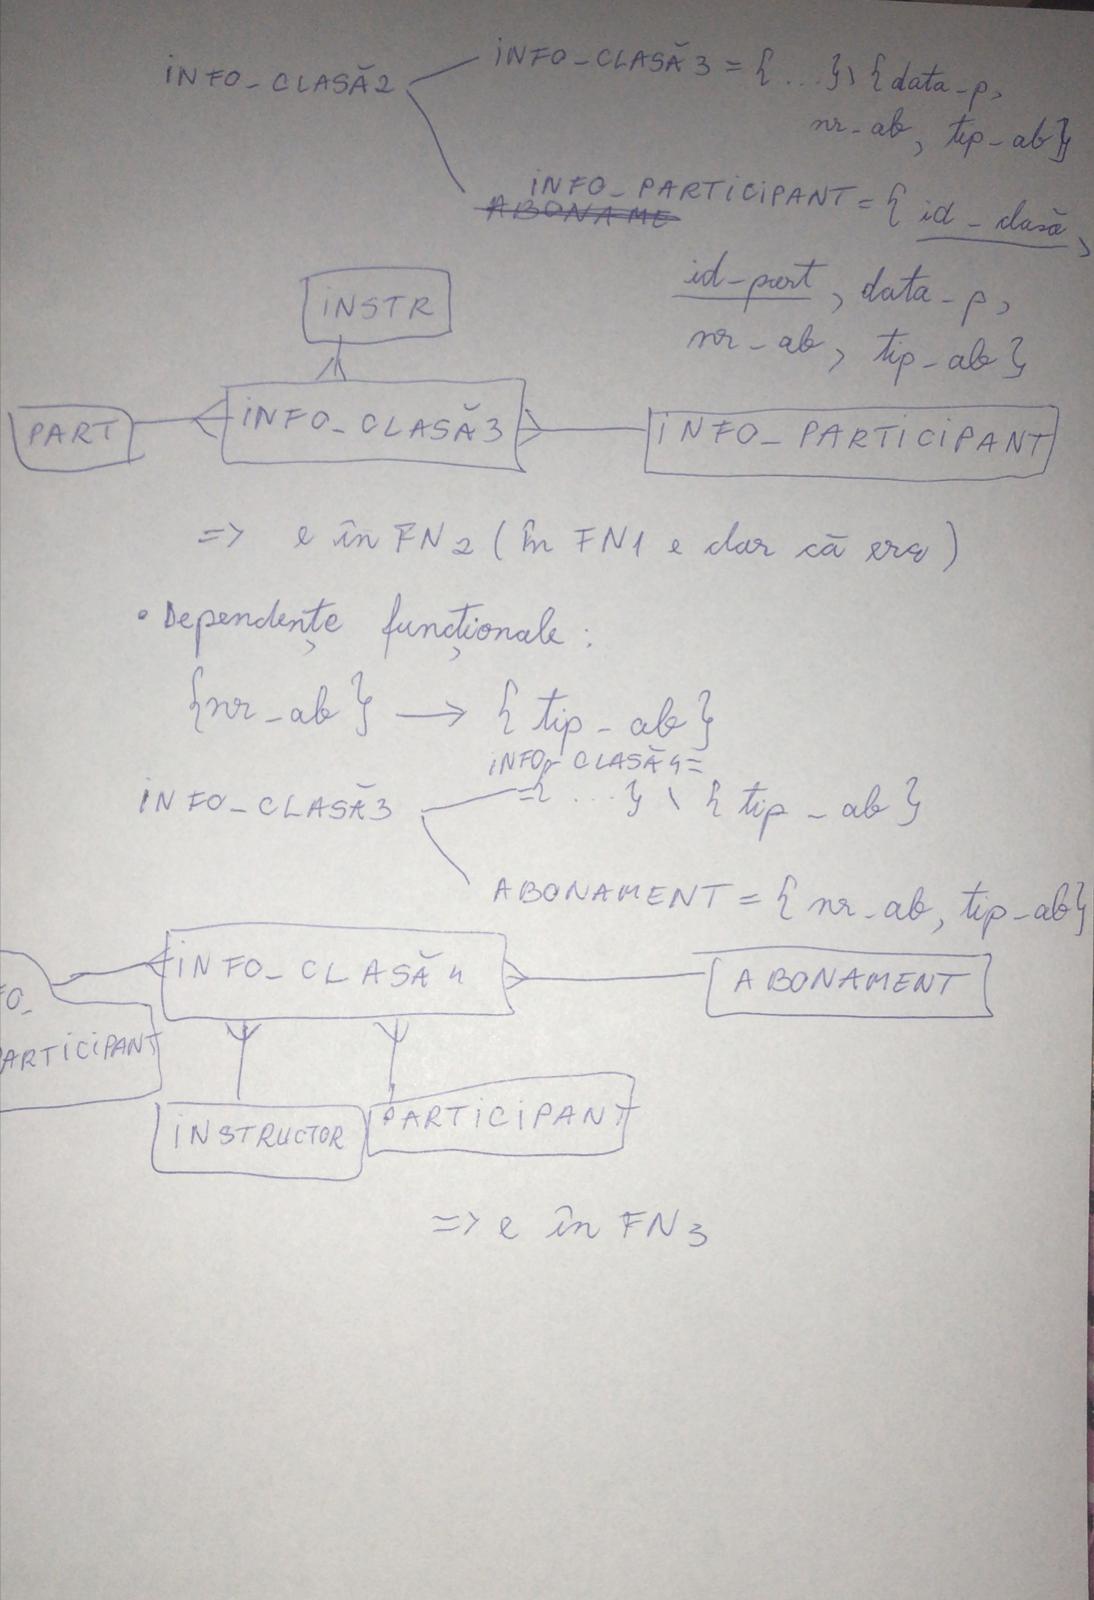 INFO_CLASĂ2
INFO_CLASĂ3 = {...} \ {data_p,
nr_ab, tip_ab}
INFO_PARTICIPANT = {id_clasă,
ABONAME
id_part, data_p,
nr_ab, tip_ab}
INSTR
PART
INFO_CLASĂ3
INFO_PARTICIPANT
=> e în FN2 (în FN1 e clar că era)
• Dependențe funcționale:
{nr_ab} → {tip_ab}
INFO_CLASĂ4=
INFO_CLASĂ3
={...} \ {tip_ab}
ABONAMENT = {nr_ab, tip_ab}
INFO_CLASĂ4
ABONAMENT
FO_
PARTICIPANT
INSTRUCTOR
PARTICIPANT
=> e în FN3